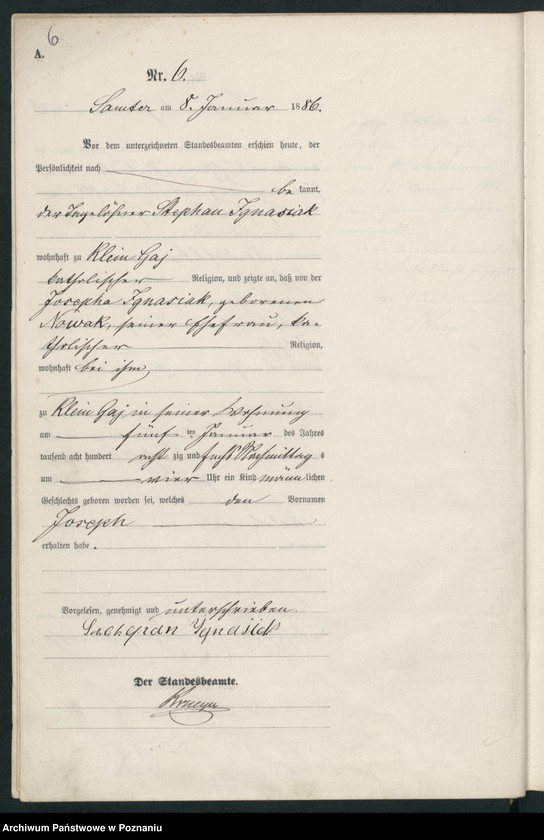 6
A.
Nr. 6.
Samter am 8. Januar 1886.
Vor dem unterzeichneten Standesbeamten erschien heute, der
Persönlichkeit nach
be kannt,
der Tagelöhner Stephan Ignasiak
wohnhaft zu Klein Gaj
katholischer Religion, und zeigte an, daß von der
Josepha Ignasiak, geborenen
Nowak, seiner Ehefrau, ka-
tholischer Religion,
wohnhaft bei ihm,
zu Klein Gaj in seiner Wohnung
am fünf ten Januar des Jahres
tausend acht hundert acht zig und sechs Nachmittag s
um vier Uhr ein Kind männ lichen
Geschlechts geboren worden sei, welches den Vornamen
Joseph
erhalten habe.
Vorgelesen, genehmigt und unterschrieben.
Ignasiak
Der Standesbeamte.
Archiwum Państwowe w Poznaniu